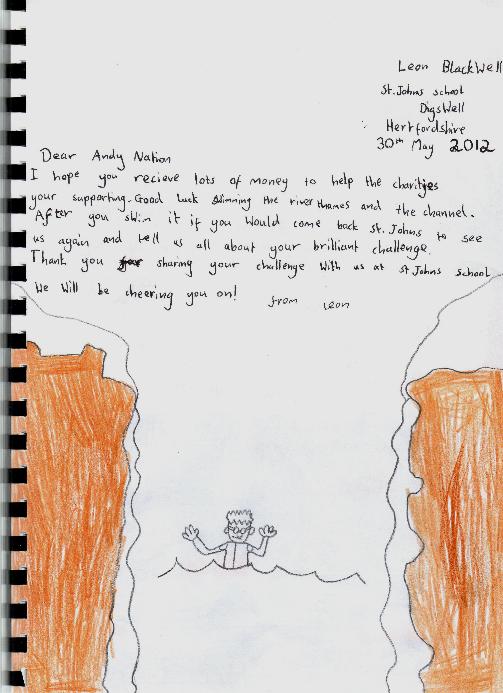 Leon Blackwell
St. Johns school
Digswell
Hertfordshire
30th May 2012
Dear Andy Nation
I hope you recieve lots of money to help the charities
your supporting. Good luck swimming the river thames and the channel.
After you swim it if you would come back St. Johns to see
us again and tell us all about your brilliant challenge.
Thank you for sharing your challenge with us at St Johns school
We will be cheering you on! from Leon